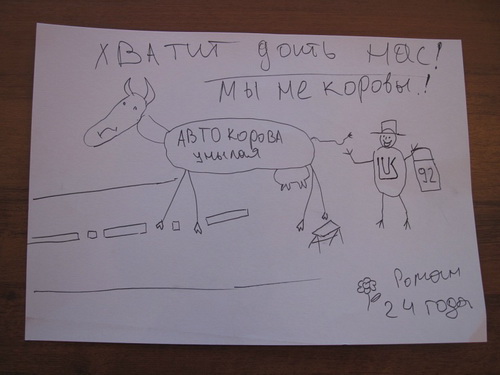 ХВАТИТ доить нас!
Мы не коровы!
АВТО КОРОВА
унылая
92
Роман
24 года